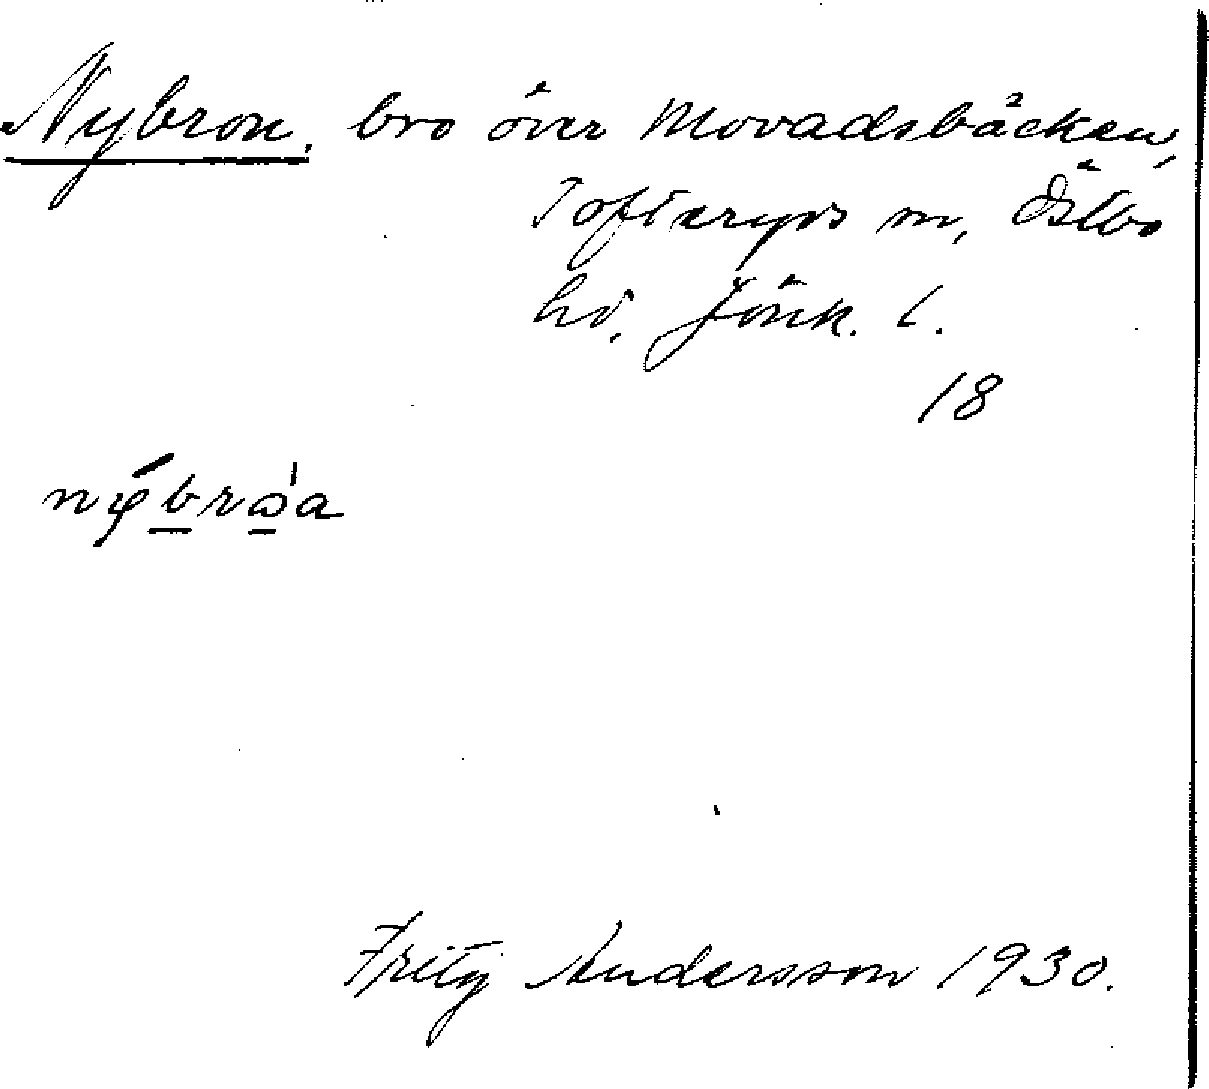 Nybron, bro över Movadsbäcken,
Tofteryds sn, Östbo
hd, Jönk. l.
18
Fritz Andersson 1930.